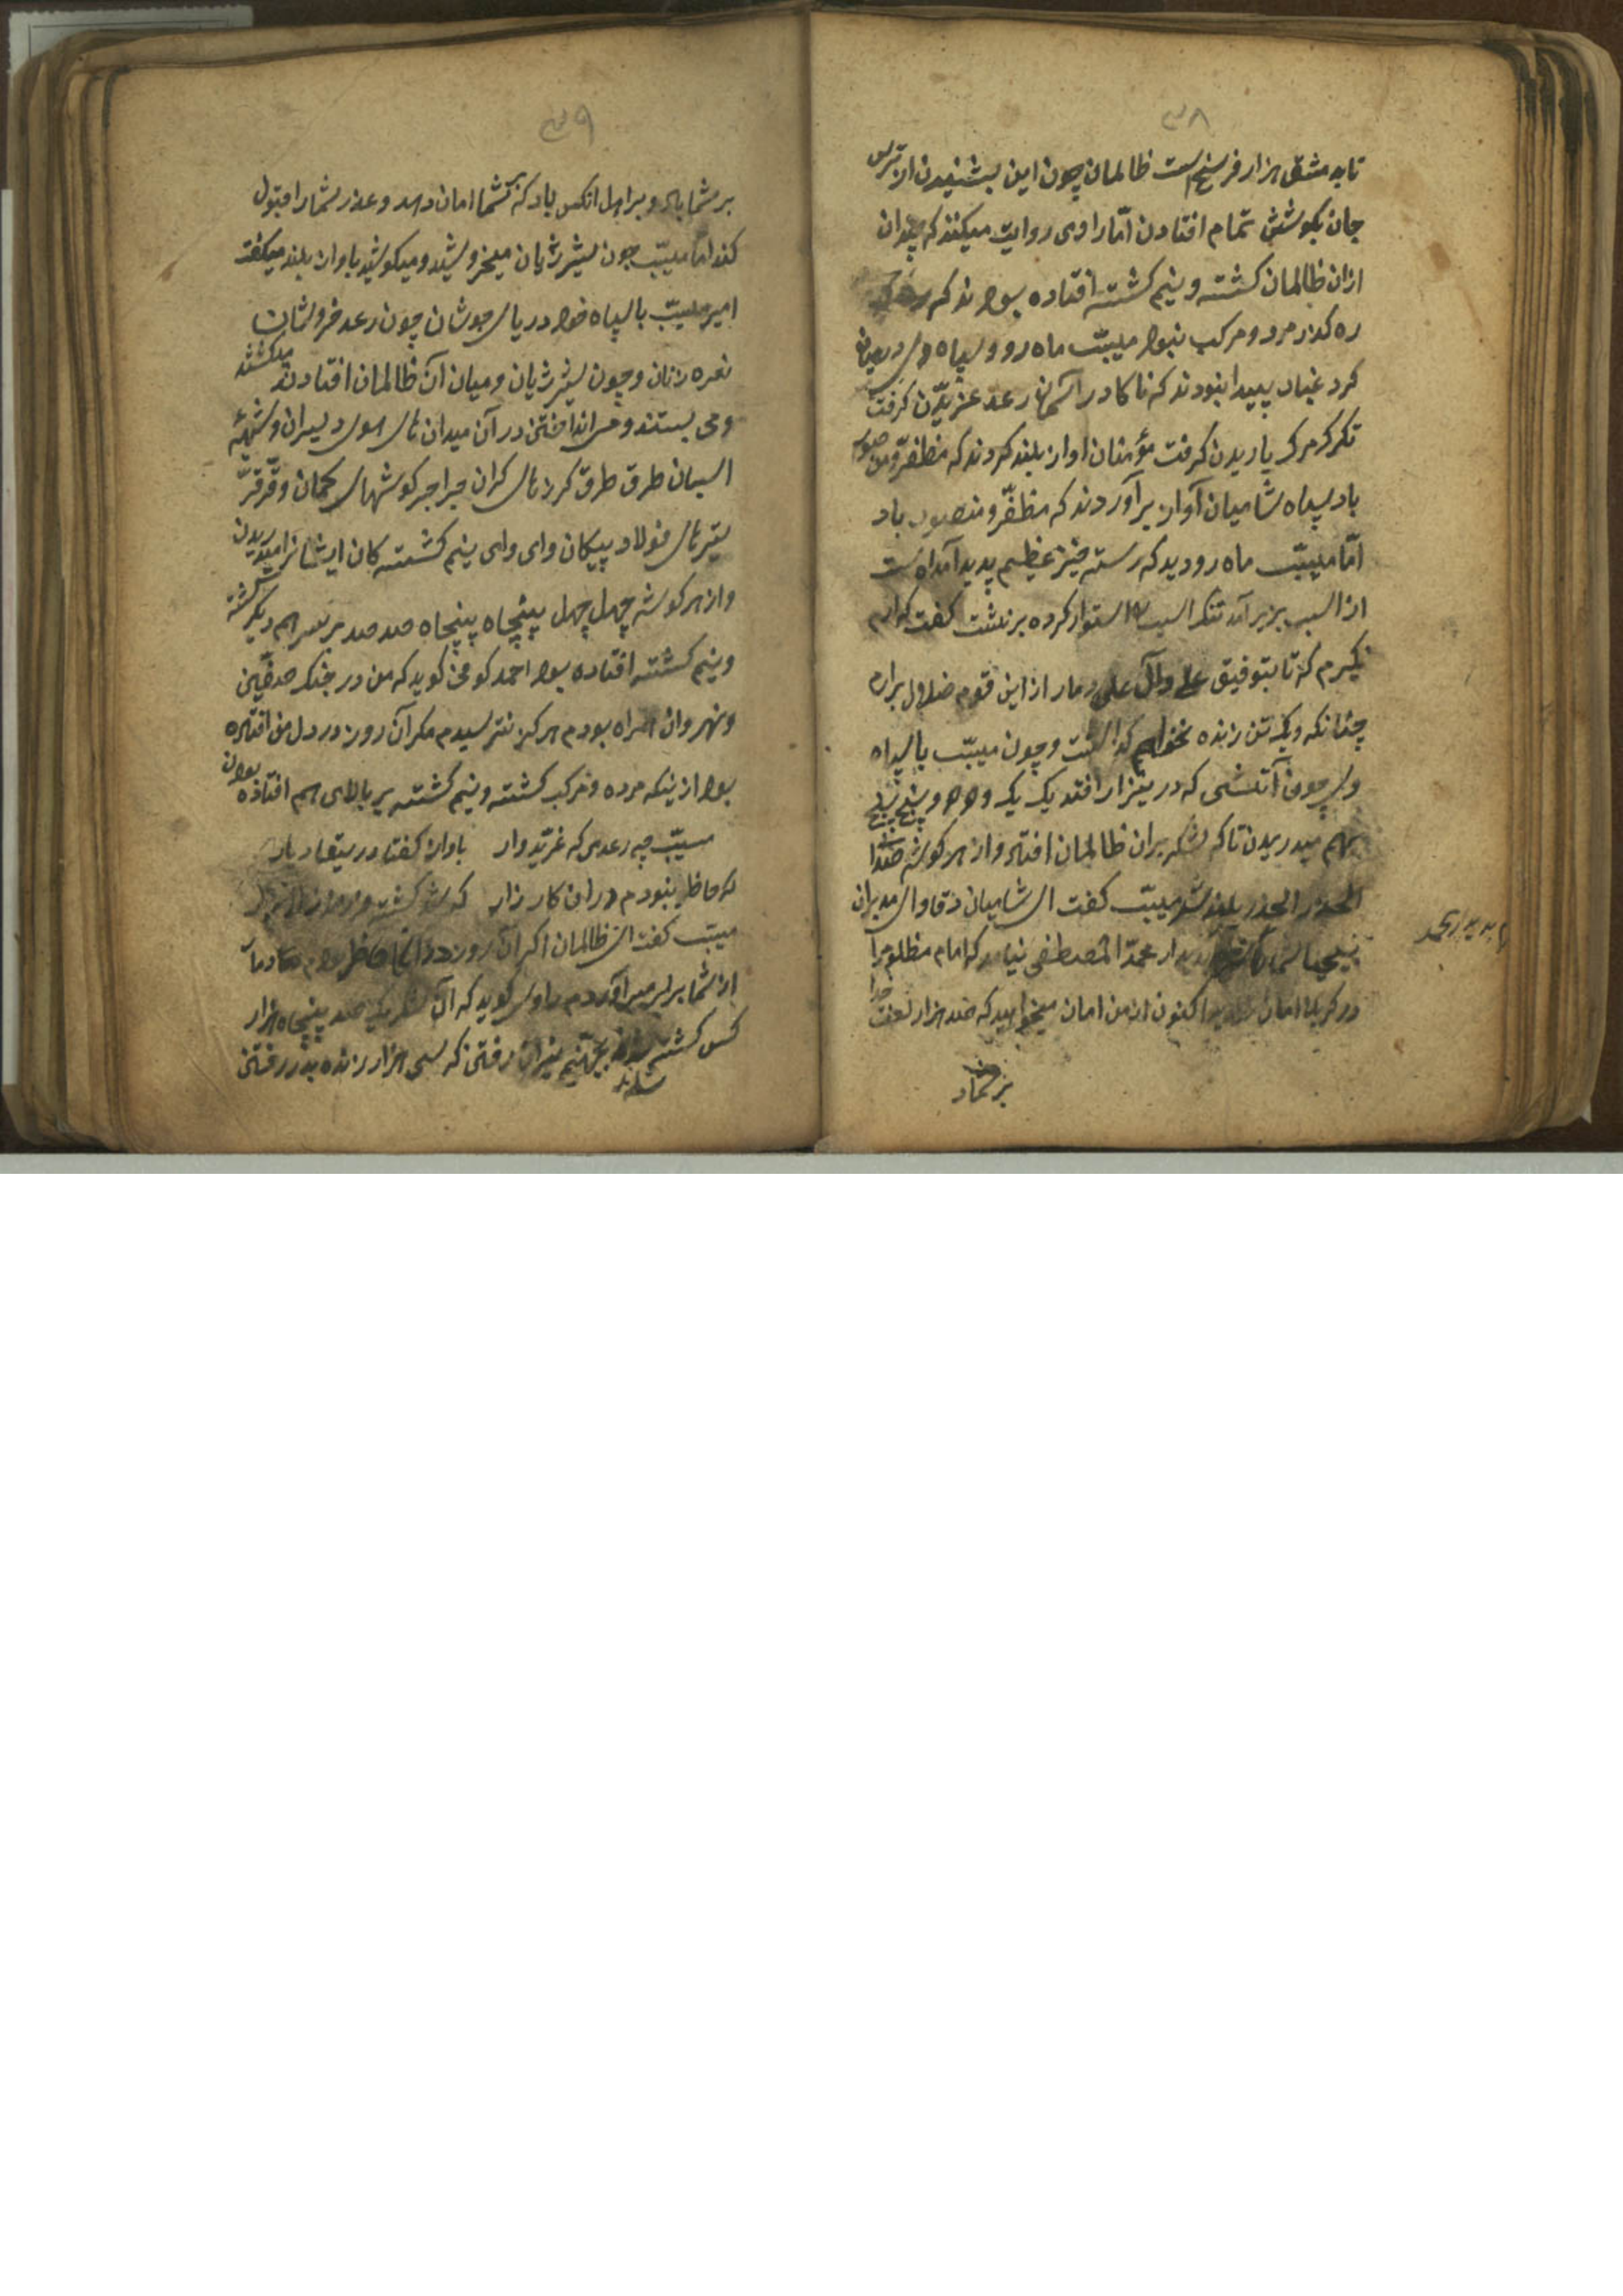 ۳۸
تا به مشق هزار فرسنج است ظالمان چون این بشنیدن از ترس
جان بکوشش تمام افتادن امّا راوی روایت میکند که چندان
ازان ظالمان کشته و نیم کشته افتاده بود ند که
ره کذر مرد و مرکب نبود میبّب ماه رو و سپاه وی در میان
کرد غبار پیدا نبودند که ناکا در آسمان رعد غریّدن کرفت
تکرک مرک باریدن کرفت مؤمنان اواز بلند کردند که مظفّر و منصور
باد سپاه شامیان آواز برآوردند که مظفّر و منصوب باد
امّا میبّب ماه رو دید که رسته خیز عظیم پدید آمداه ست
از اسب بزیر آمد تنک اسب را استوار کرده بر نشت کفت
نکیرم که تا بتوفیق علی و آل علی دمار از این قوم ضلال برارم
چنانکه و یک تن زنده نخواهم کذاشت و چون میبّب با سپاه
وی چون آتشی که در نیزار افتد یک یک و دو دو و پنج پنج
بهم میدریدن تا که لشکر بران ظالمان افتاد و از هر کوشه صدا
الحذر الحذر بلند شد میبّب کفت ای شامیان دقاوای مدبران
بدیدار محمّد المصطفی نیامد که امام مظلوم را
در کربلا امان ندادید اکنون از من امان میخواهید که صد هزار لعنت خدا
بر شما د
۳۹
بر شما باد و برا هل انکس باد که بر شما امان دهد و عذر شما را قبول
کند امّا میبّب چون شیر ژیان میخروشید و میکوشید باواز بلند میکفت
امیر میبّب با سپاه خود دریای جوشان چون رعد خروشان
نعره زنان و چون شیر ژیان و میان آن ظالمان افتادند میکشتند
و می بستند و می انداختن در آن میدان های هوی دلیران و شیهه
اسبان طرق طرق کرزهای کران جراجر کوشهای کمان و قرقرّ
تیرهای فولاد پیکان وای وای نیم کشته کان ایشانرا میدریدن
و از هر کوشه چهل چهل پنجاه پنجاه صد صد بر سر هم دیکر کشته
و نیم کشته افتاده بود احمد کوفی کوید که من در جنک صفّین
و نهروان همراه بودم هرکز نترسیدم مکر آن روز در دل من افتاده
بود از ینکه مرده و مرکب کشته و نیم کشته بر بالای هم افتاده بودن
میبّب چه رعدی که غریّد وار باواز کفتا در
که حاظر نبودم دران کار زار
میبّب کفت ای ظالمان اکر آن روز در انجا حاظر بودم
از شما برابر میرآوردم راوی کوید که آن لشکر یک صد پنجاه هزار
کس کشته شدند بجهنّم نیران رفتن که سی هزار زنده بدر رفتن